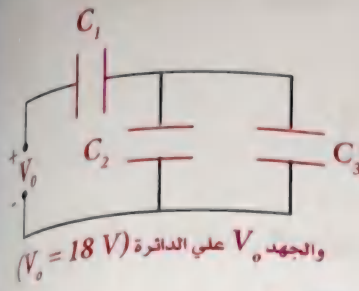 C₁
+
V₀
-
C₂
C₃
والجهد V₀ علي الدائرة (V₀ = 18 V)